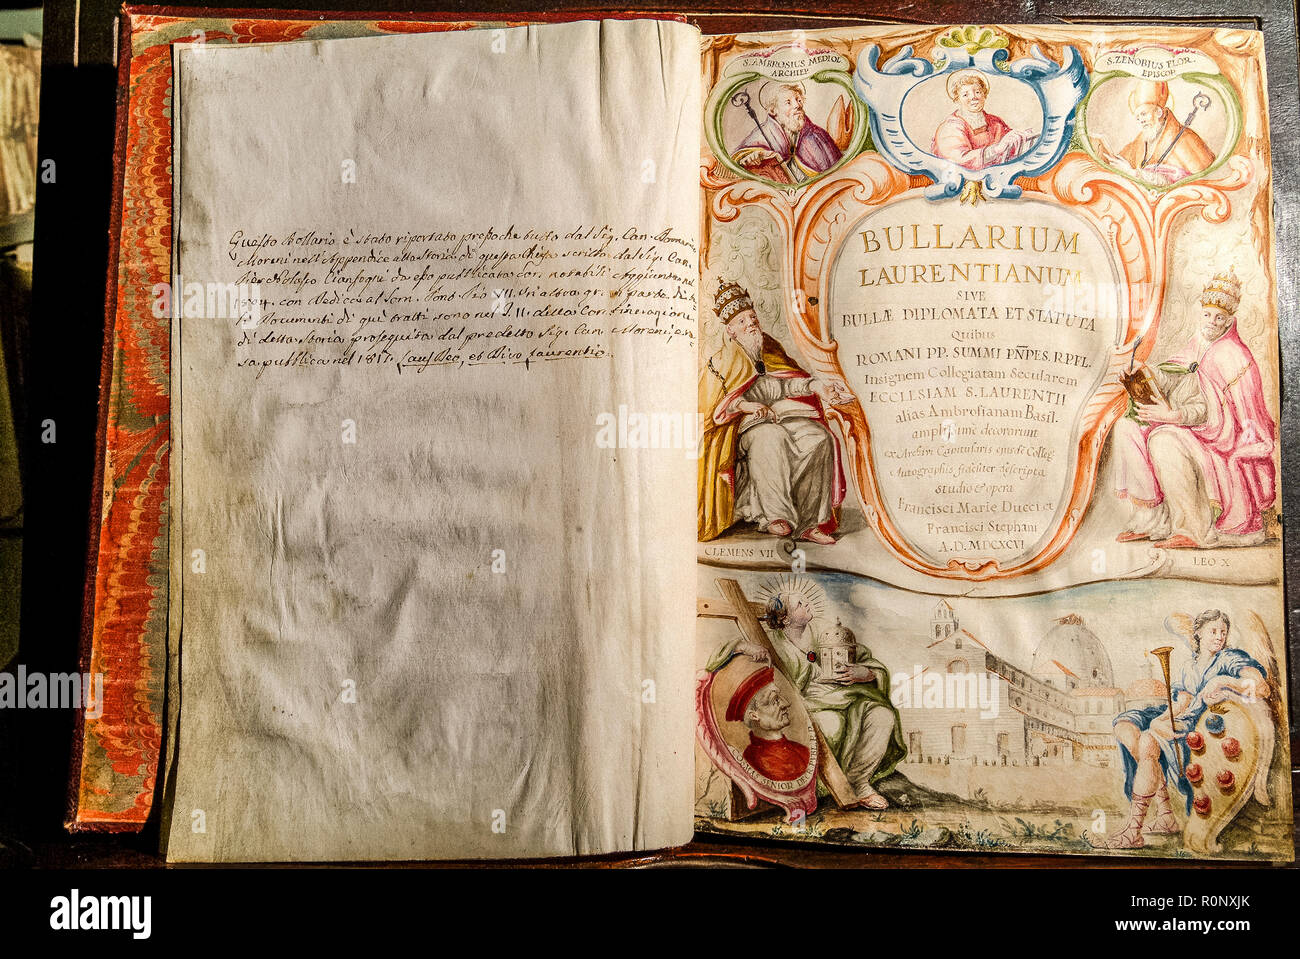 Questo Bollario è stato riportato presso che tutto dal Sig. Can.
Moreni nell' Appendice alla Storia di questa Chiesa scritta dal Sig. Can.
Pier Nolasco Cianfogni da esso pubblicata con notabili Aggiunte nel
1804. con Dedica al Som. Pont. Pio VII. Un' altra gr. parte di
Documenti di quei tratti sono nel T. II. della Continuazione
di detta Storia proseguita dal predetto Sig. Can. Moreni, e
sa pubblicata nel 1817. Laus Deo, et Divo Laurentio.
S. AMBROSIUS MEDIOL
ARCHIEP.
S. ZENOBIUS FLOR.
EPISCOP.
BULLARIUM
LAURENTIANUM
SIVE
BULLÆ DIPLOMATA ET STATUTA
Quibus
ROMANI PP. SUMMI PÑPES. R.P.FL.
Insignem Collegiatam Secularem
ECCLESIAM S. LAURENTII
alias Ambrosianam Basil.
amplissimè decorarunt
ex Archivi Capitularis ejusdē Colleg.
Autographis fideliter descripta
Studio & opera
Francisci Marie Ducci et
Francisci Stephani
A.D. MDCXCVI
CLEMENS VII
LEO X
SENIOR
alamy
Image ID: R0NXJK
www.alamy.com